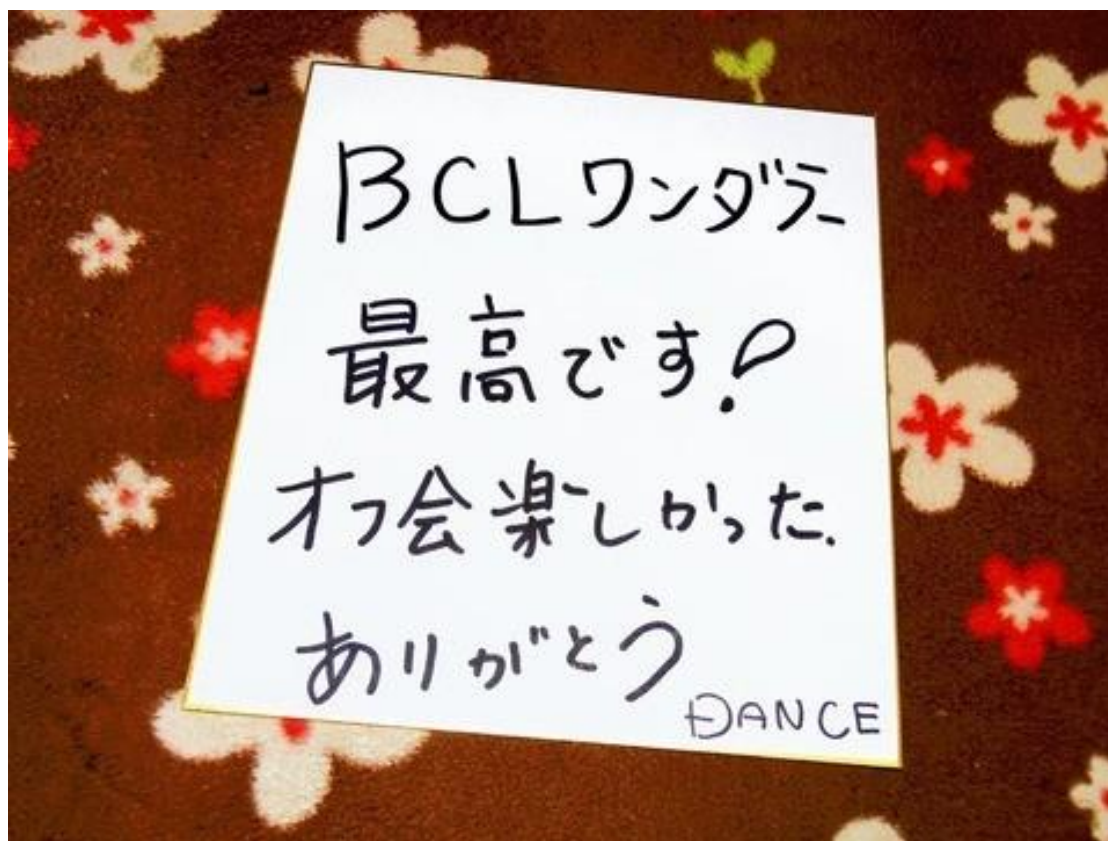 BCLワンダラー
最高です!
オフ会楽しかった.
ありがとう
DANCE